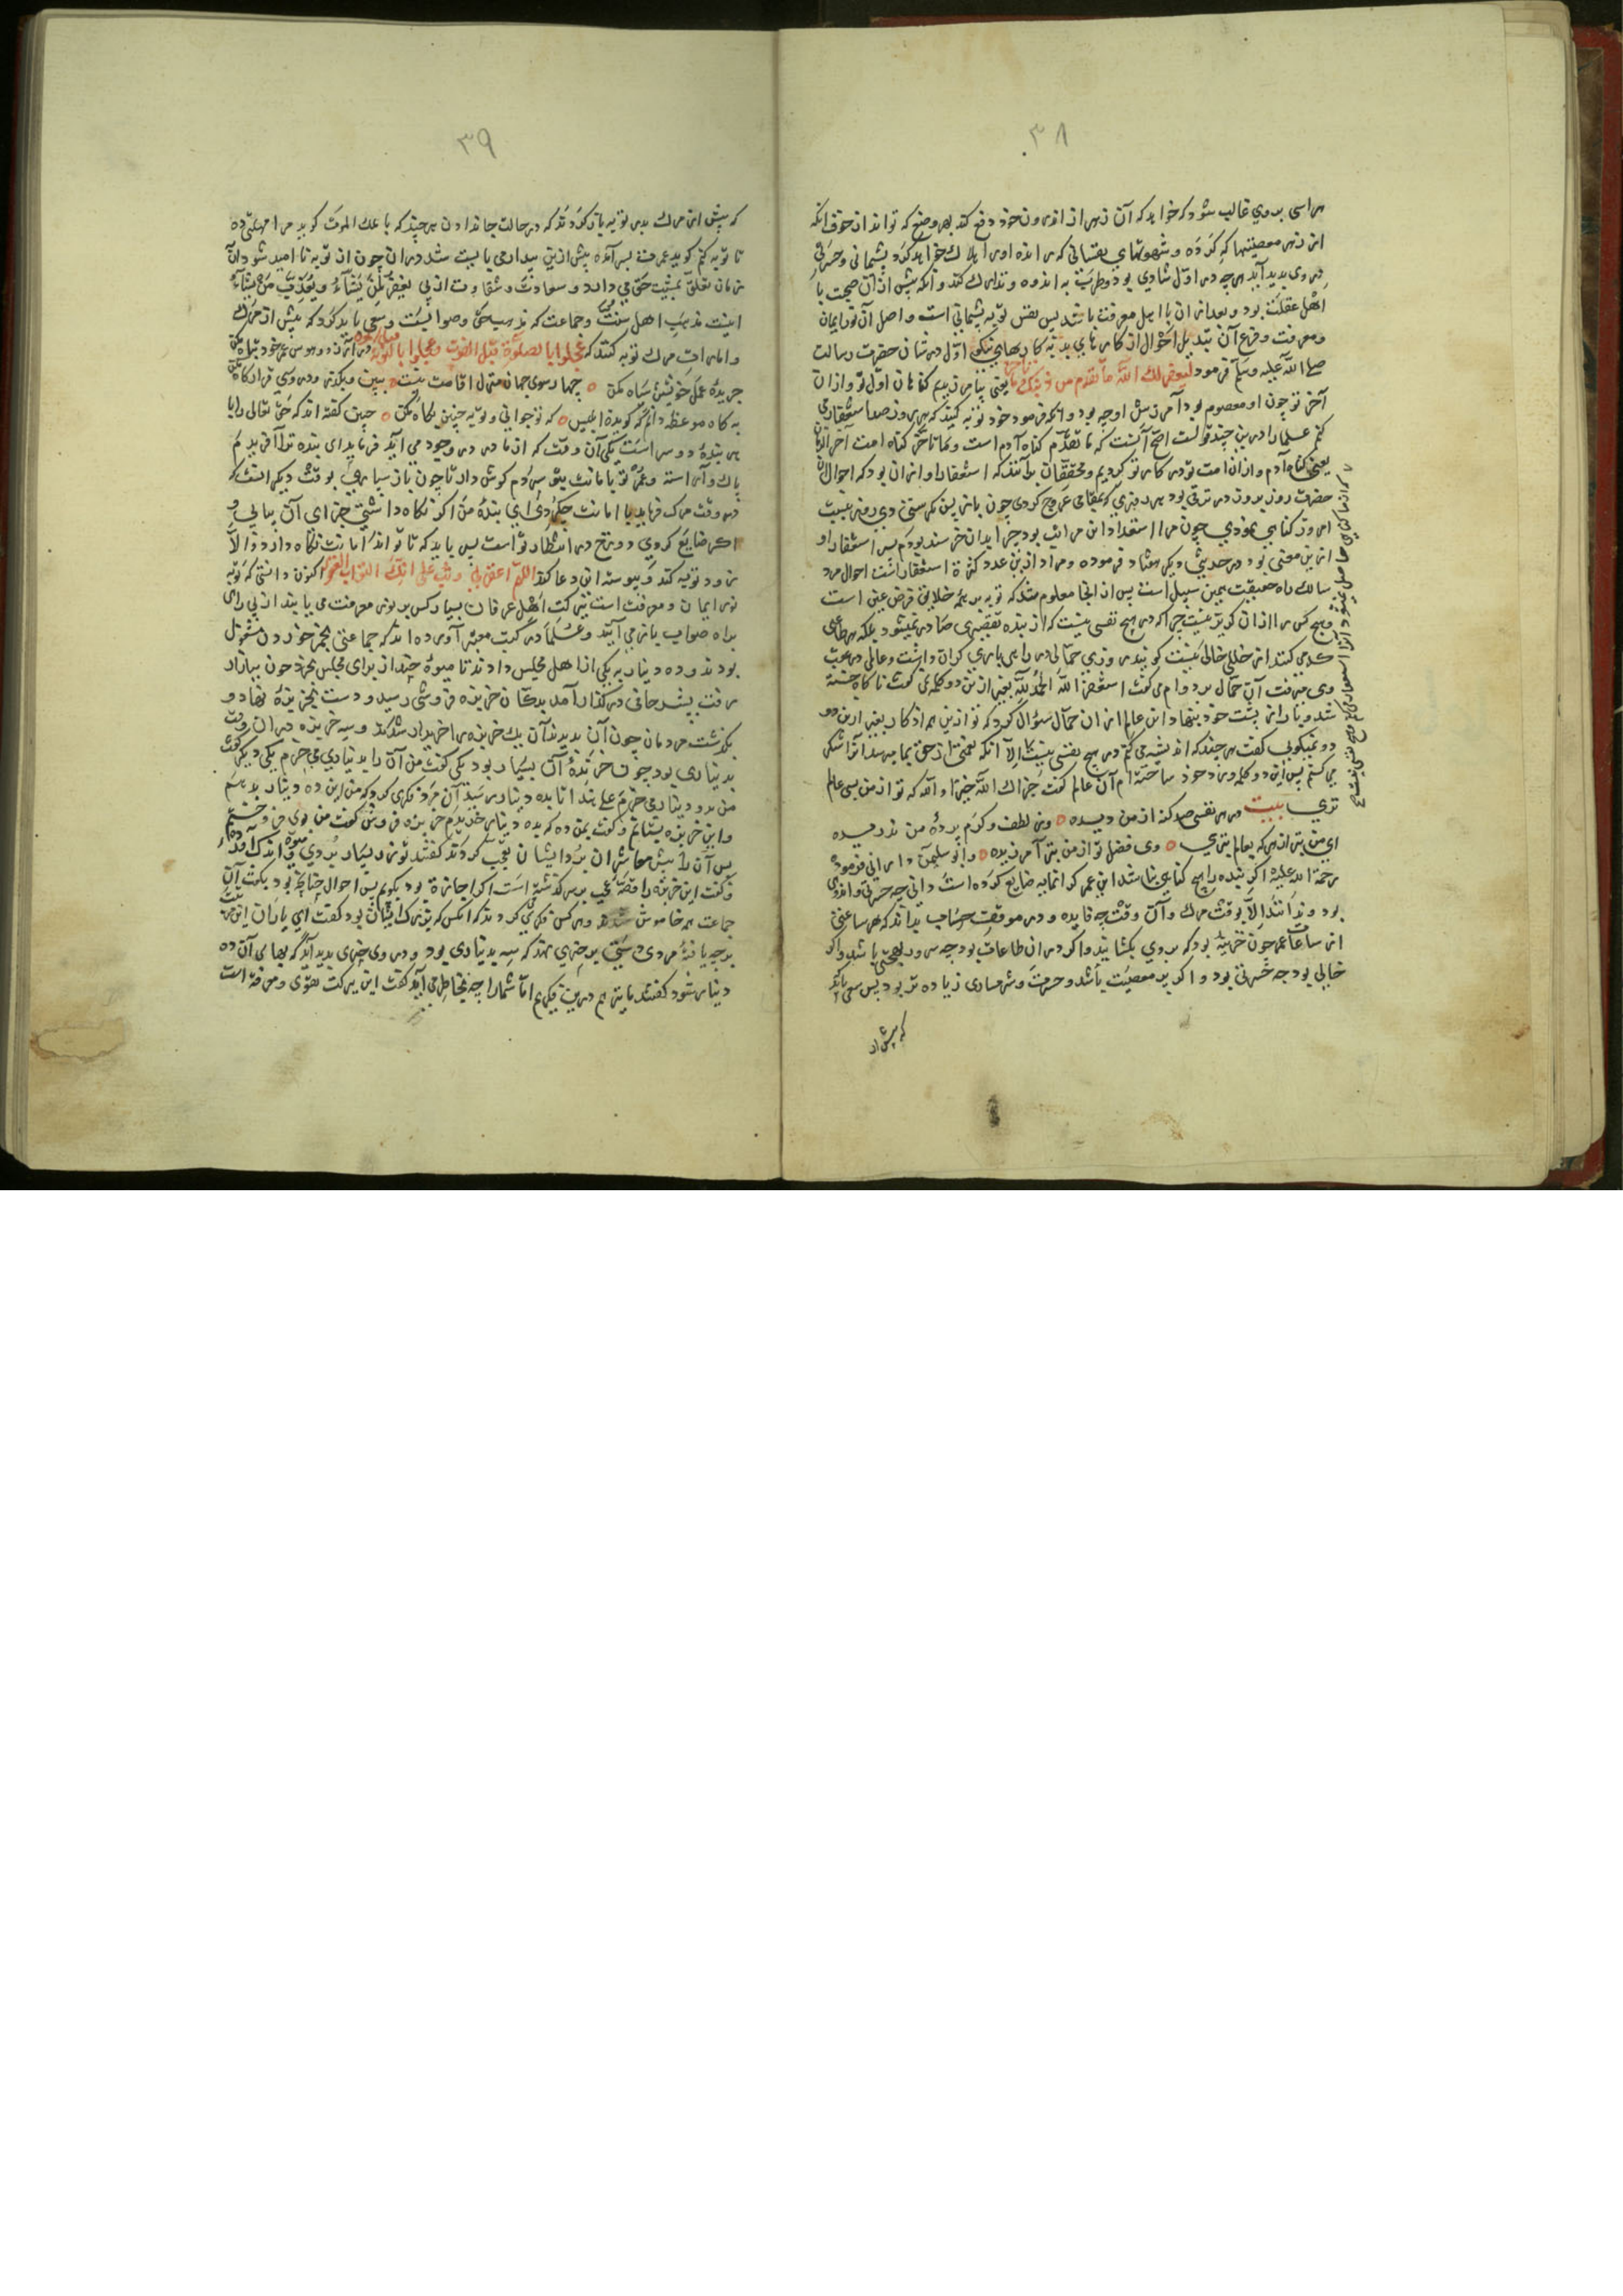 ٣٨
هراسی بروی غالب شود که خواهد که آن زهر از اندرون خود دفع کند بهر وضع که تواند از خوف انکه
از زهر معصیتها که کرده و شهوتهای نفسانی که رانده او را هلاک خواهد کرد پشیمانی و حسرتی
در وی پدید آید هر چه در اول شادی بود و طرب به اندوه و تدارک کند و انکه پیش ازان صحبت با
اهل غفلت بود و بعد ازان با اهل معرفت باشد پس نفس توبه پشیمانی است و اصل آن نور ایمان
و معرفت و فرع آن تبدیل احوال از کارهای بد به کارهای نیکو اول در شان حضرت رسالت
صلی الله علیه وسلم فرمود لیغفر لک الله ما تقدم من ذنبک وما تاخر یعنی بیامرزیدیم کناهان اول تو وازان
آخر تو چون او معصوم بود آمرزش او چه بود وانکه فرمود خود توبه کنید که هر روز صد استغفار می
کنم علما را درین چند قولست اصح آنست که ما تقدم کناه آدم است وما تاخر کناه امت آخر الزمان
یعنی کناه آدم وازان امت تو در کار تو کردیم و محققان برآنند که استغفار او ازان بود که احوال ان
حضرت روز بروز در ترقی بود هر روزی که بمقامی عروج کردی چون باز پس نکریستی دی روز نسبت
امروز کناهی نمودی چون مرا استعداد این مراتب بود چرا بدان خرسند بودم پس استغفار او
ازین معنی بود و در حدیثی دیکر هفتاد فرموده و مراد ازین عدد کثرة استغفار است احوال مرد
سالک راه حقیقت بدین سبیل است پس از اینجا معلوم شد که توبه بر همه خلایق فرض عین است
و هیچ کس را ازان کریز نیست چرا که در هیچ نفسی نیست که از بنده تقصیری صادر نمیشود بلکه هر طاعتی
که می کند از خللی خالی نیست کویند روزی حمالی در راهی باری کران داشت و عالمی در عقب
وی میرفت آن حمال بر دوام می کفت استغفر الله الحمد لله بغیر ازین دو کلمه نمی کفت تا کاه خسته
شد و بار از پشت خود بنهاد این عالم ازان حمال سؤال کرد که تو ازین همه اذکار بغیر ازین دو
دو نمیکویی کفت هر چند که اندیشه می کنم در هیچ نفسی نیست الا آنکه نعمتی از حق بما میرسد آنرا شکر
می کنم پس این دو کلمه ورد خود ساخته ام آن عالم کفت جزاک الله خیرا والله که تو از من بسی عالم
تری بیت در هر نفسی صد کنه از من دیده o وز لطف و کرم پردهٔ من ندریده
ای من بتر از هر که بعالم بتری o وی فضل تو از من بتر آمرزیده o وابو سلیمان دارانی فرموده
رحمة الله علیه اکر بنده را هیچ کناهی نباشد این عمر کرانمایه ضایع کرده است دانی چه حسرتی و اندوهی
بود و نداند الا بوقت مرک وآن وقت چه فایده و در موقف حساب بداند که هر ساعتی
از ساعات عمر چون خزینه بود که بروی بکشایند واکر دران طاعات بود چه سرور و بهجتی باشد واکر
خالی بود چه حسرتی بود و اکر پر معصیت باشد و حسرت و شرمساری زیاده تر بود پس سعی باید
که پیش از
٣٩
که پیش از مرک بدر توبه باز کردند که در حالت جاندادن هر چند که با ملک الموت کوید مرا مهلتی ده
تا توبه کنم کوید عمرت بسر آمده پیش ازین بیدار می بایست شد دران چون از توبه نا امید شود آن
زمان تعلق بمشیت حق می دارد و سعادت و شقاوت ازلی یغفر لمن یشاء و یعذب من یشاء
اینست مذهب اهل سنت و جماعت که مذهب حق و صوابست و سعی باید کرد که پیش از مرک
و امارات مرک توبه کنند که عجلوا بالصلوة قبل الفوت وعجلوا بالتوبة قبل الموت در آرزو و هوس عمر خود تباه مکن
جریدهٔ عمل خویش سیاه مکن o چهار سوی جهان منزل اقامت نیست o ببین و بکذر و در وی قرارکاه مکن
به کاه موعظه دانم که کویدت ابلیس o که نوجوانی و توبه چنین بکاه مکن o چنین کفته اند که حق تعالی را با
هر بندهٔ دو سر است یکی آن وقت که از مادر در وجود می آید فرماید ای بنده ترا آفریدم
پاک و آراسته و عمر تو بامانت بتو سپردم کوش دار تا چون باز سپاری بوقت دیکر انست که
در وقت مرک فرماید با امانت چه کردی ای بندهٔ من اکر نکاه داشتی جزای آن بیابی و
اکر ضایع کردی دوزخ در انتظار تو است پس باید که تا تواند امانت نکاه دارد و الا
زود توبه کند و پیوسته این دعا کند اللهم اغفر لی وتب علی انک التواب الغفور اکنون دانستی که توبه
نور ایمان و معرفت است ببرکت اهل عرفان بسیار کس بر نور معرفت می یابند از بی راهی
براه صواب باز می آیند و علما در کتب معتبر آورده اند که جماعتی بخمر خوردن مشغول
بودند و ده دینار به یکی از اهل مجلس دادند تا میوهٔ چند از برای مجلس بخرد چون ببازار
رفت بشر حافی در کذار آمد بدکان خربزه فروشی رسید و دست بخربزهٔ نهاد و
بکذشت مردمان چون آن بدیدند آن یک خربزه را خریدار شدند و سه خربزه دران وقت
بدیناری بود چون خرندهٔ آن بسیار بود یکی کفت من آن را بدیناری می خرم یکی دیکر کفت
من بدو دینار می خرم علی هذا تا بده دینار رسید آن مرد فکری کرد که من این ده دینار بدهم
واین خربزه بستانم و کفت بمن ده که بده دینار خریدم خربزه فروش کفت من بوی فروختم
پس آن را پیش معاشران برد ایشان تعجب کردند کفتند تو زر بسیار بردی میوهٔ اندک آوردهٔ
کفت این خربزه را قصهٔ عجب بر سر کذشته است اکر اجازة بود بکویم پس احوال چنانچه بود بکفت آن
جماعت همه خاموش شدند و هر کس فکری کردند که انکس که بزرک ایشان بود کفت ای یاران این چه
بود
برجه یافتهٔ مردی دستی بر چیزی نهد که سه بدیناری بود و در وی چیزی پدید آید که بهای آن ده
دینار شود کفتند ما نیز هم درین فکریم اما شما را چه بخاطر می آید کفت این برکت تقوی و معرفة است